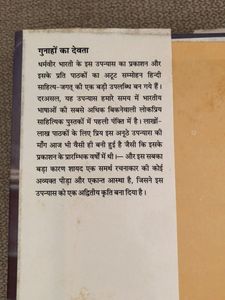 गुनाहों का देवता
धर्मवीर भारती के इस उपन्यास का प्रकाशन और
इसके प्रति पाठकों का अटूट सम्मोहन हिन्दी
साहित्य-जगत् की एक बड़ी उपलब्धि बन गये हैं।
दरअसल, यह उपन्यास हमारे समय में भारतीय
भाषाओं की सबसे अधिक बिकनेवाली लोकप्रिय
साहित्यिक पुस्तकों में पहली पंक्ति में है। लाखों-
लाख पाठकों के लिए प्रिय इस अनूठे उपन्यास की
माँग आज भी वैसी ही बनी हुई है जैसी कि इसके
प्रकाशन के प्रारम्भिक वर्षों में थी।— और इस सबका
बड़ा कारण शायद एक समर्थ रचनाकार की कोई
अव्यक्त पीड़ा और एकान्त आस्था है, जिसने इस
उपन्यास को एक अद्वितीय कृति बना दिया है।